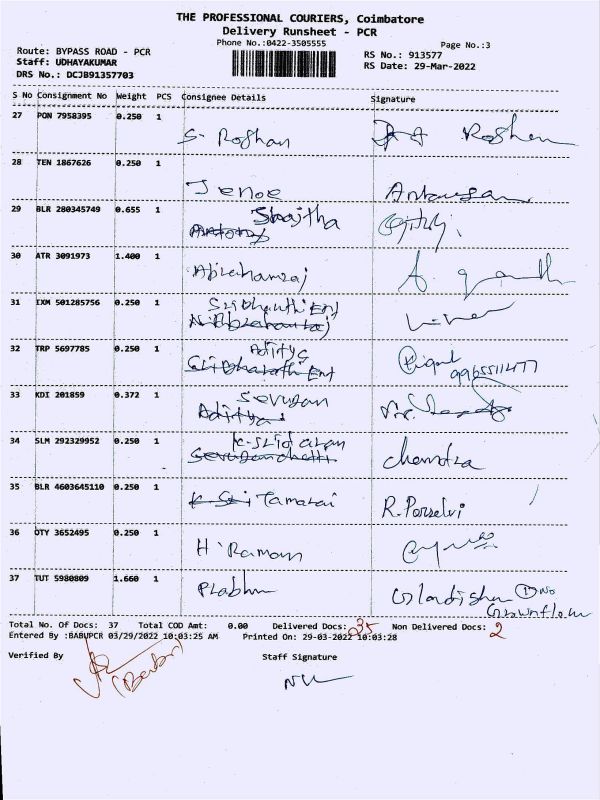 THE PROFESSIONAL COURIERS, Coimbatore
Delivery Runsheet - PCR
Phone No.:0422-3505555
Page No.:3
Route: BYPASS ROAD - PCR
RS No.: 913577
Staff: UDHAYAKUMAR
RS Date: 29-Mar-2022
DRS No.: DCJB91357703
S No Consignment No Weight PCS Consignee Details Signature
27 PON 7958395 0.250 1 S. Roshan Roshan
28 TEN 1867626 0.250 1 Jenoe
29 BLR 280345749 0.655 1 Shajitha
Antony
30 ATR 3091973 1.400 1 Abrahamraj A.
31 IXM 501285756 0.250 1 Sri Bharathi Ent
32 TRP 5697785 0.250 1 Aditya
Sri Bharathi Ent 9965511477
33 KDI 201859 0.372 1 Sevugan
Aditya
34 SLM 292329952 0.250 1 K-Sridaran chandra
Sevuganchetti
35 BLR 4603645110 0.250 1 K Sri Tamarai R. Porselvi
36 OTY 3652495 0.250 1 H. Raman
37 TUT 5980809 1.660 1 Prabhu 1 No
Total No. Of Docs: 37 Total COD Amt: 0.00 Delivered Docs: 35 Non Delivered Docs: 2
Entered By :BABUPCR 03/29/2022 10:03:25 AM Printed On: 29-03-2022 10:03:28
Verified By Staff Signature
(Babu)